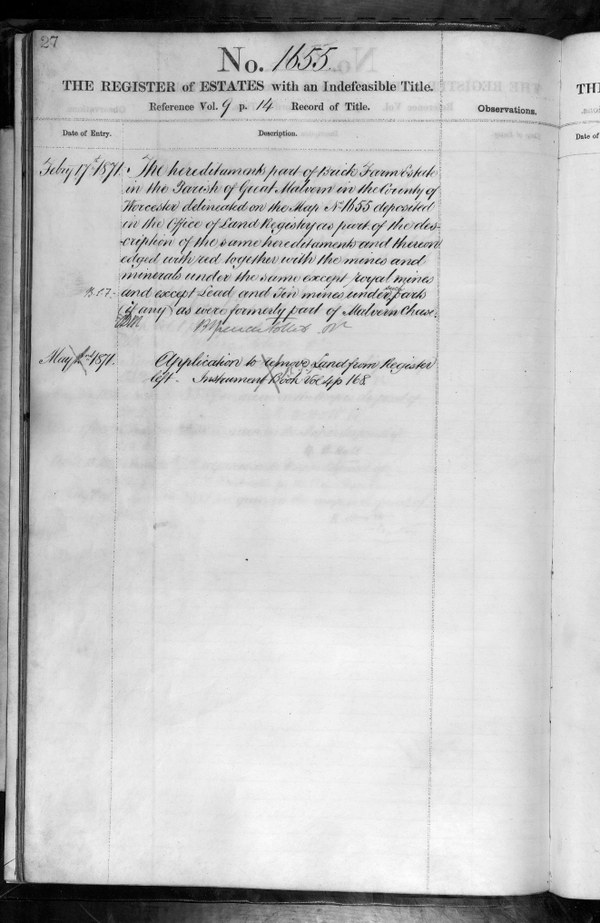 27
No. 1655
THE REGISTER of ESTATES with an Indefeasible Title.
Reference Vol. 9 p. 14 Record of Title.
Observations.
Date of Entry.
Description.
Feby 17th 1871. The hereditaments part of Brick Farm Estate
in the Parish of Great Malvern in the County of
Worcester delineated on the Map No 1655 deposited
in the Office of Land Registry as part of the des-
cription of the same hereditaments and thereon
edged with red together with the mines and
minerals under the same except royal mines
and except Lead and Tin mines under parts
(if any) as were formerly part of Malvern Chase.
May 1871. Application to remove Land from Register
left. Instrument Book Vol 4 p 168
THE
Date of